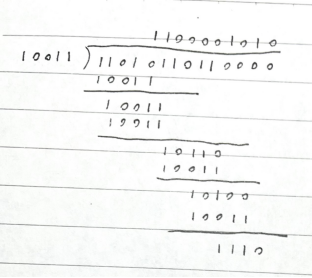 1100001010
10011 ) 11010110110000
10011
10011
10011
10110
10011
10100
10011
1110